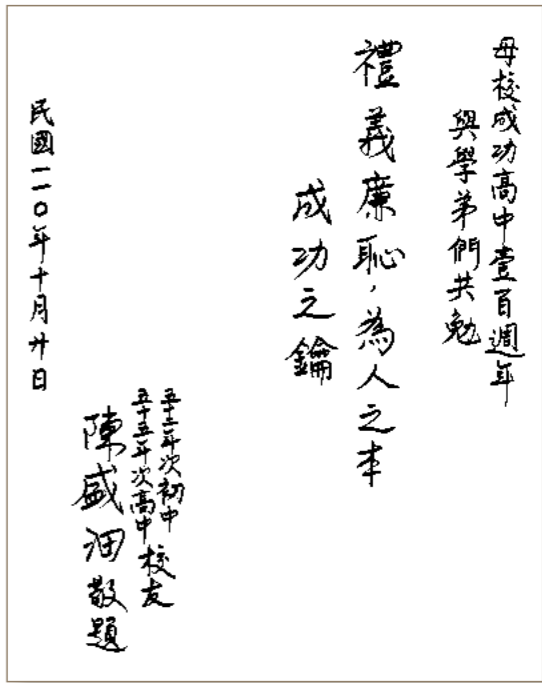 母校成功高中壹百週年
與學弟們共勉
禮義廉恥，為人之本
成功之鑰
五十二年次初中
五十五年次高中校友
陳盛沺敬題
民國一一〇年十月廿日